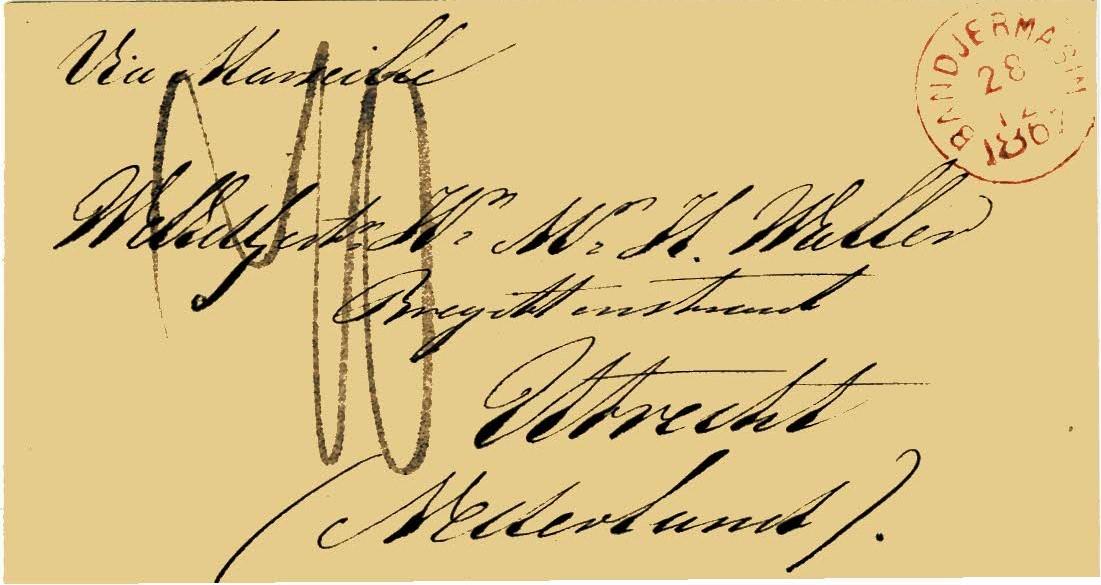 Via Marseille
BANDJERMASIN
28
12
WelEdlGestr Hr Mr H. Waller
Bregittenstraat
Utrecht
(Nederland).